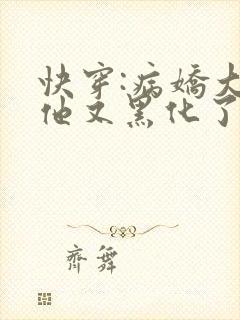 快穿:病嬌大
他又黑化了
齊舞